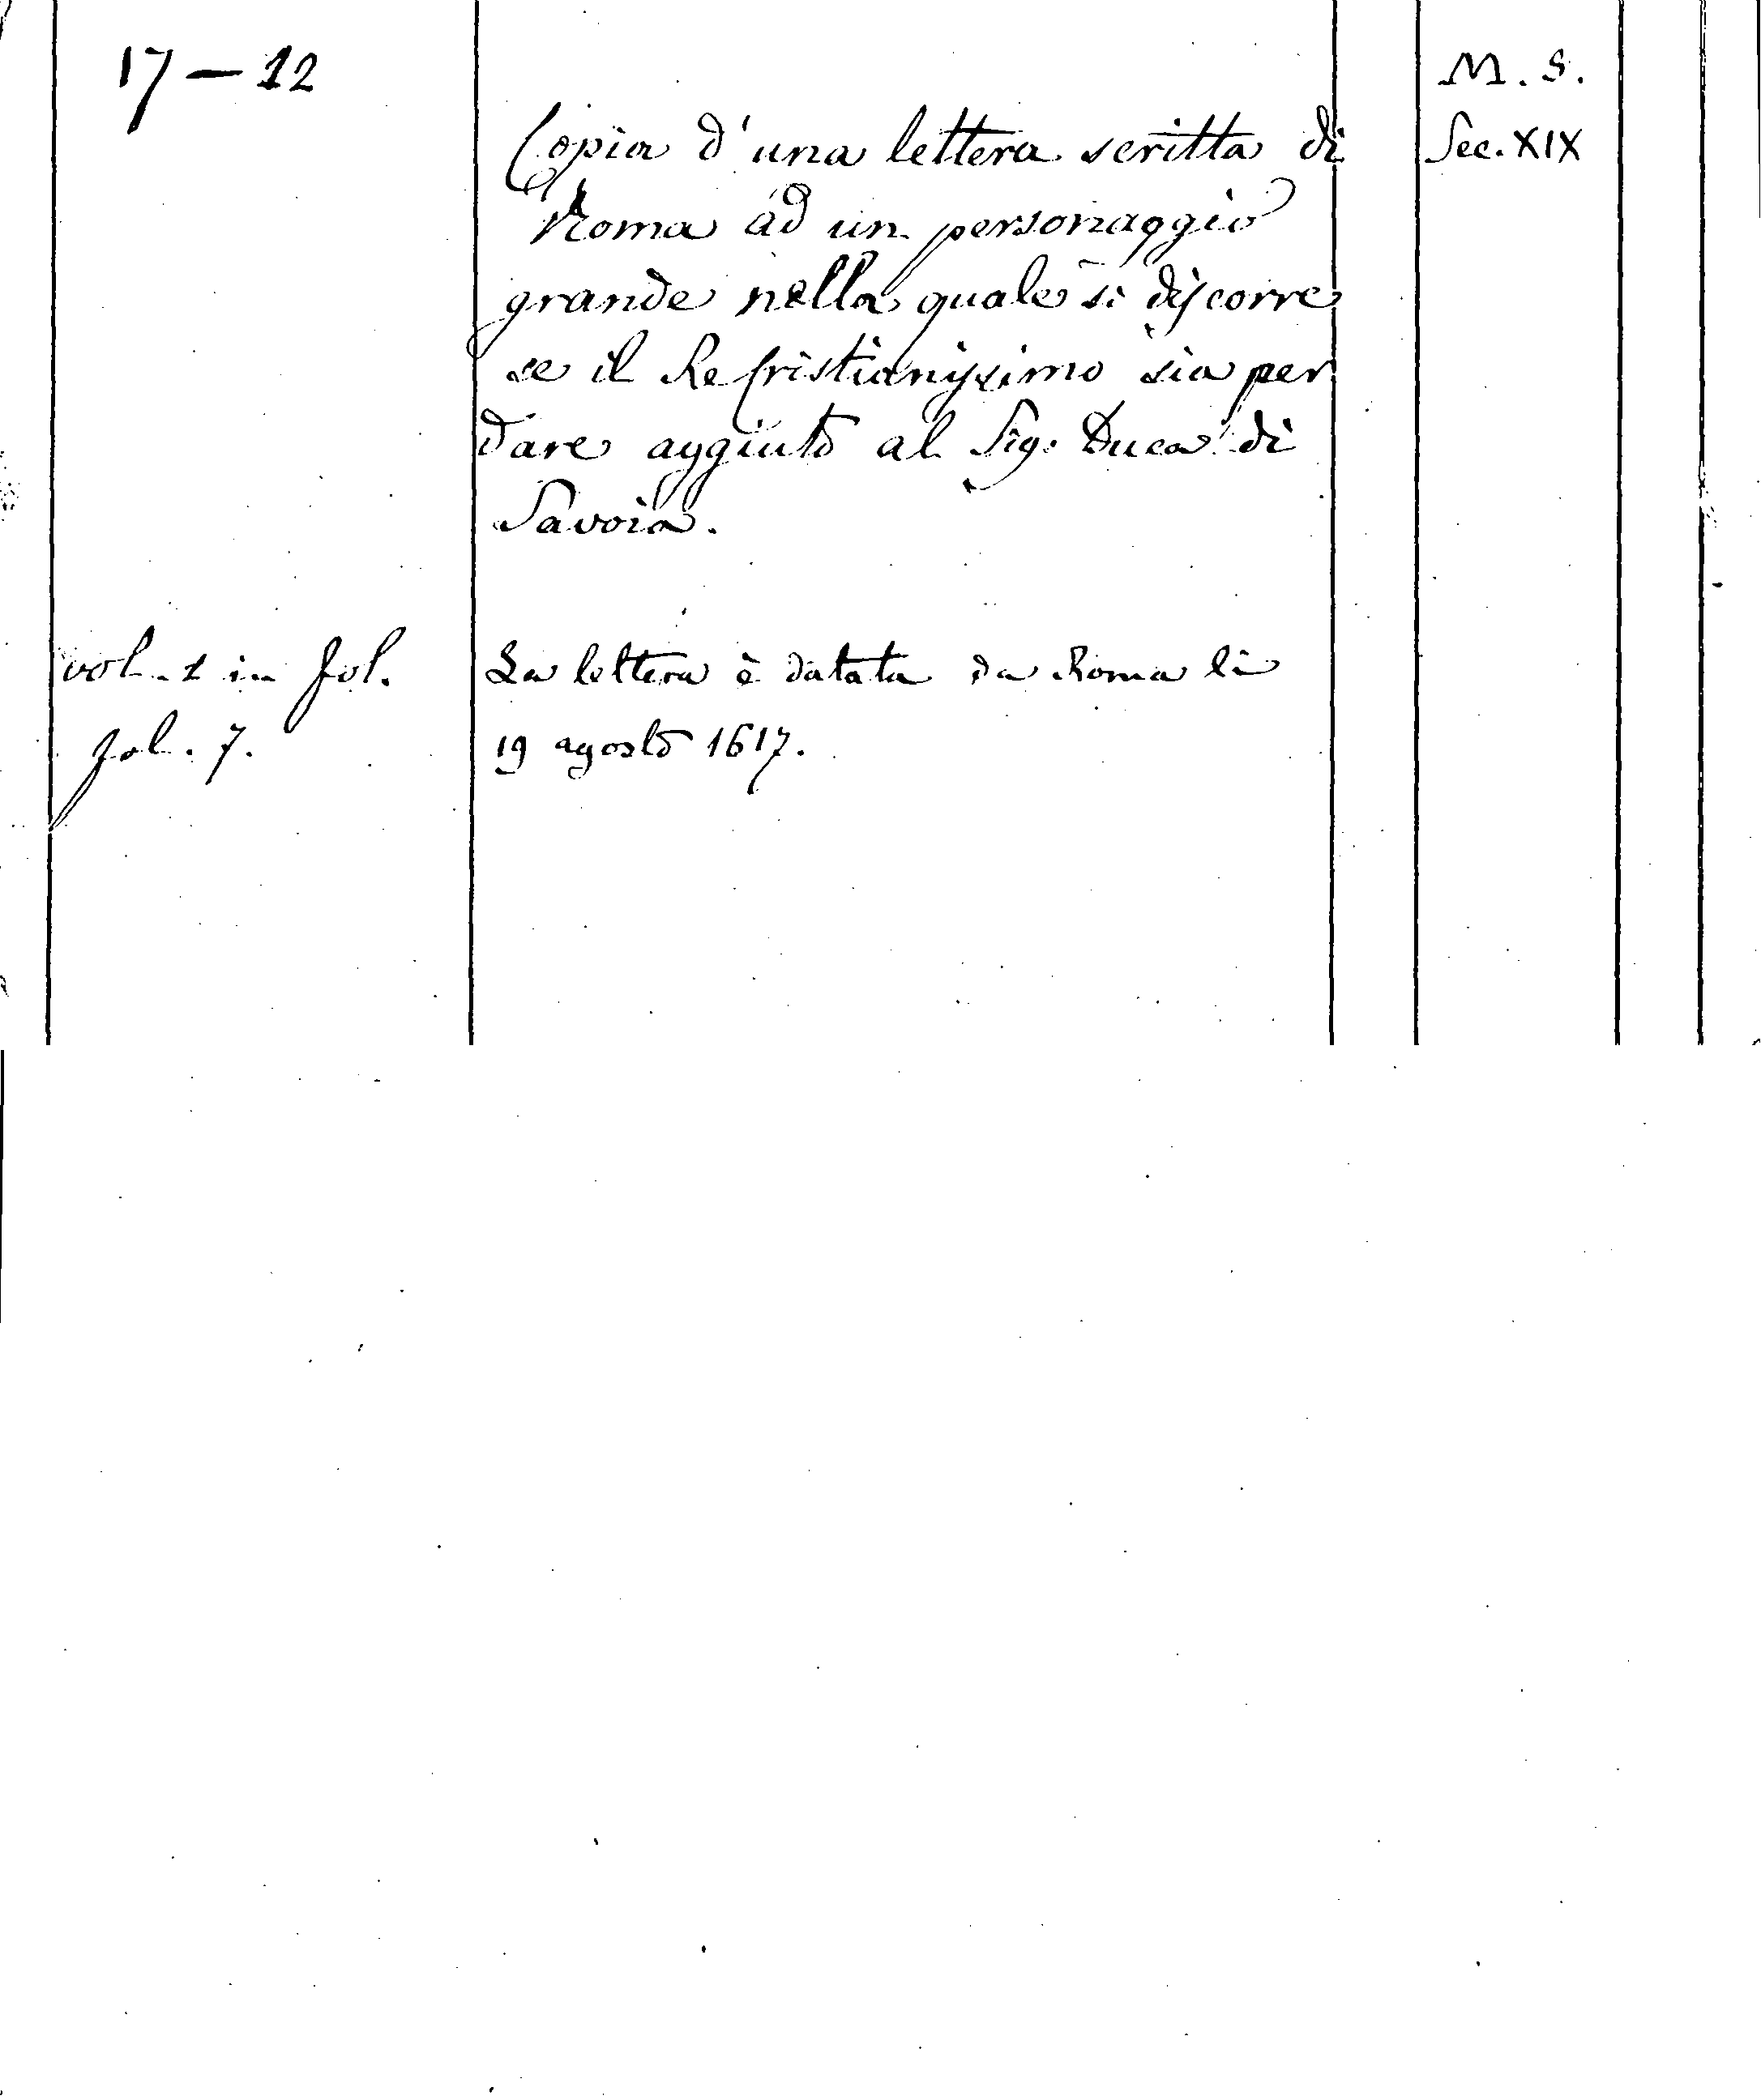 17 — 12
M. S.
Copia d'una lettera scritta di
Sec. XIX
Roma ad un personaggio
grande nella quale si discorre
se il Re Cristianissimo sia per
dare aggiuto al Sig. Duca di
Savoia.
vol. 1 in fol.
La lettera è datata da Roma li
fol. 7.
19 agosto 1617.